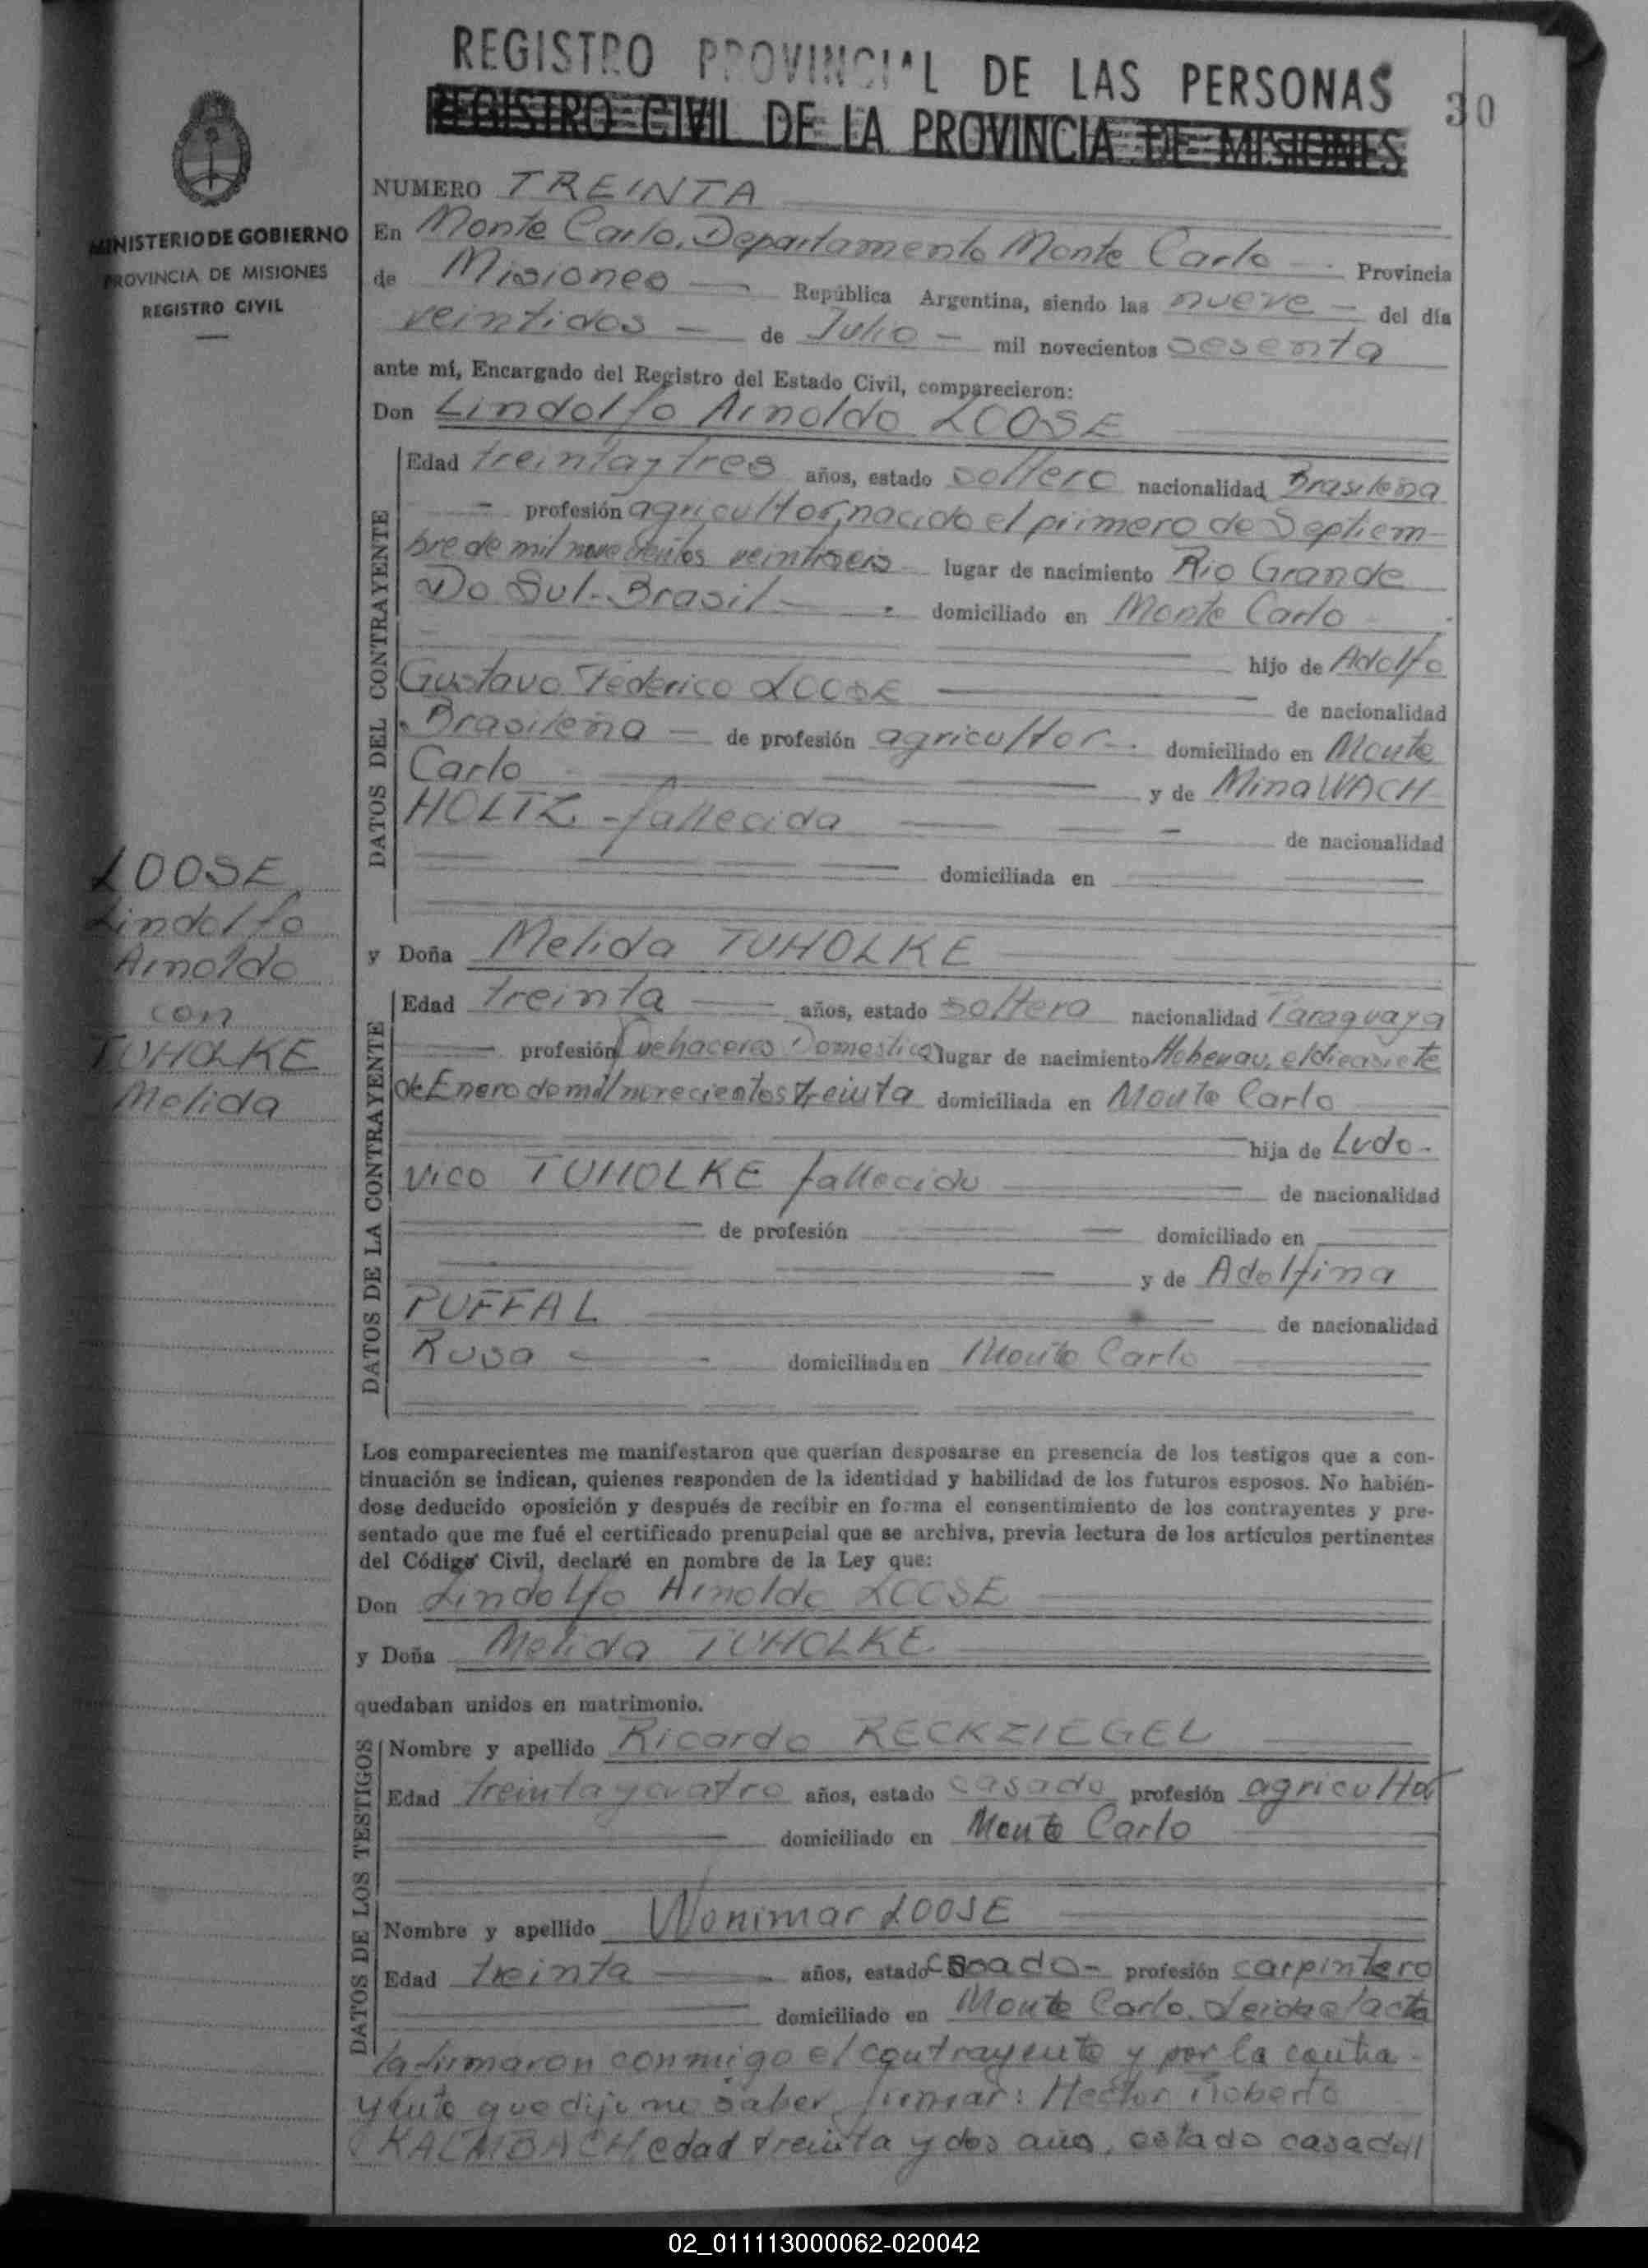 REGISTRO PROVINCIAL DE LAS PERSONAS
REGISTRO CIVIL DE LA PROVINCIA DE MISIONES
30
MINISTERIO DE GOBIERNO
PROVINCIA DE MISIONES
REGISTRO CIVIL
NUMERO TREINTA
En Monte Carlo, Departamento Monte Carlo Provincia
de Misiones República Argentina, siendo las nueve del día
veintidos de Julio mil novecientos sesenta
ante mí, Encargado del Registro del Estado Civil, comparecieron:
Don Lindolfo Arnoldo LOOSE
DATOS DEL CONTRAYENTE
Edad treinta y tres años, estado soltero nacionalidad Brasileña
profesión agricultor, nacido el primero de Septiem-
bre de mil novecientos veintiseis lugar de nacimiento Rio Grande
Do Sul-Brasil domiciliado en Monte Carlo
hijo de Adolfo
Gustavo Federico LOOSE de nacionalidad
Brasileña de profesión agricultor domiciliado en Monte
Carlo y de Mina WACH
HOLTZ - fallecida de nacionalidad
domiciliada en
LOOSE
Lindolfo
Arnoldo
con
TUHOLKE
Melida
y Doña Melida TUHOLKE
DATOS DE LA CONTRAYENTE
Edad treinta años, estado soltera nacionalidad Paraguaya
profesión Quehaceres Domestico lugar de nacimiento Hohenau, el diecisiete
de Enero de mil novecientos treinta domiciliada en Monte Carlo
hija de Ludo-
vico TUHOLKE fallecido de nacionalidad
de profesión domiciliado en
y de Adolfina
PUFFAL de nacionalidad
Rusa domiciliada en Monte Carlo
Los comparecientes me manifestaron que querían desposarse en presencia de los testigos que a con-
tinuación se indican, quienes responden de la identidad y habilidad de los futuros esposos. No habién-
dose deducido oposición y después de recibir en forma el consentimiento de los contrayentes y pre-
sentado que me fué el certificado prenupcial que se archiva, previa lectura de los artículos pertinentes
del Código Civil, declaré en nombre de la Ley que:
Don Lindolfo Arnoldo LOOSE
y Doña Melida TUHOLKE
quedaban unidos en matrimonio.
DATOS DE LOS TESTIGOS
Nombre y apellido Ricardo RECKZIEGEL
Edad treinta y cuatro años, estado casado profesión agricultor
domiciliado en Monte Carlo
Nombre y apellido Wonimar LOOSE
Edad treinta años, estado casado - profesión carpintero
domiciliado en Monte Carlo. Leida el acta
la firmaron conmigo el contrayente y por la contra-
yente que dijo no saber firmar: Hector Roberto
KALMBACH, edad treinta y dos años, estado casado//
02_011113000062-020042